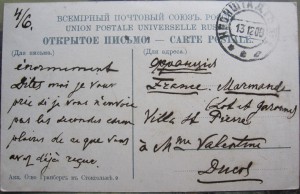 4/6.
ВСЕМІРНЫЙ ПОЧТОВЫЙ СОЮЗЪ. РОССІЯ
UNION POSTALE UNIVERSELLE RUSSIE
ОТКРЫТОЕ ПИСЬМО — CARTE POSTALE.
КРОНШТАДТ
13 12 06
(Для письма).
énormément
Dites moi je vous
prie si je vous envoie
pas les secondes exem
plaires de ce que vous
avez déjà reçue.
(Для адреса).
Франція
France. Marmande
Lot et Garonne
Villa St Pierre
à Mme Valentine
Ducos
Акц. Общ. Гранбергъ въ Стокгольмѣ